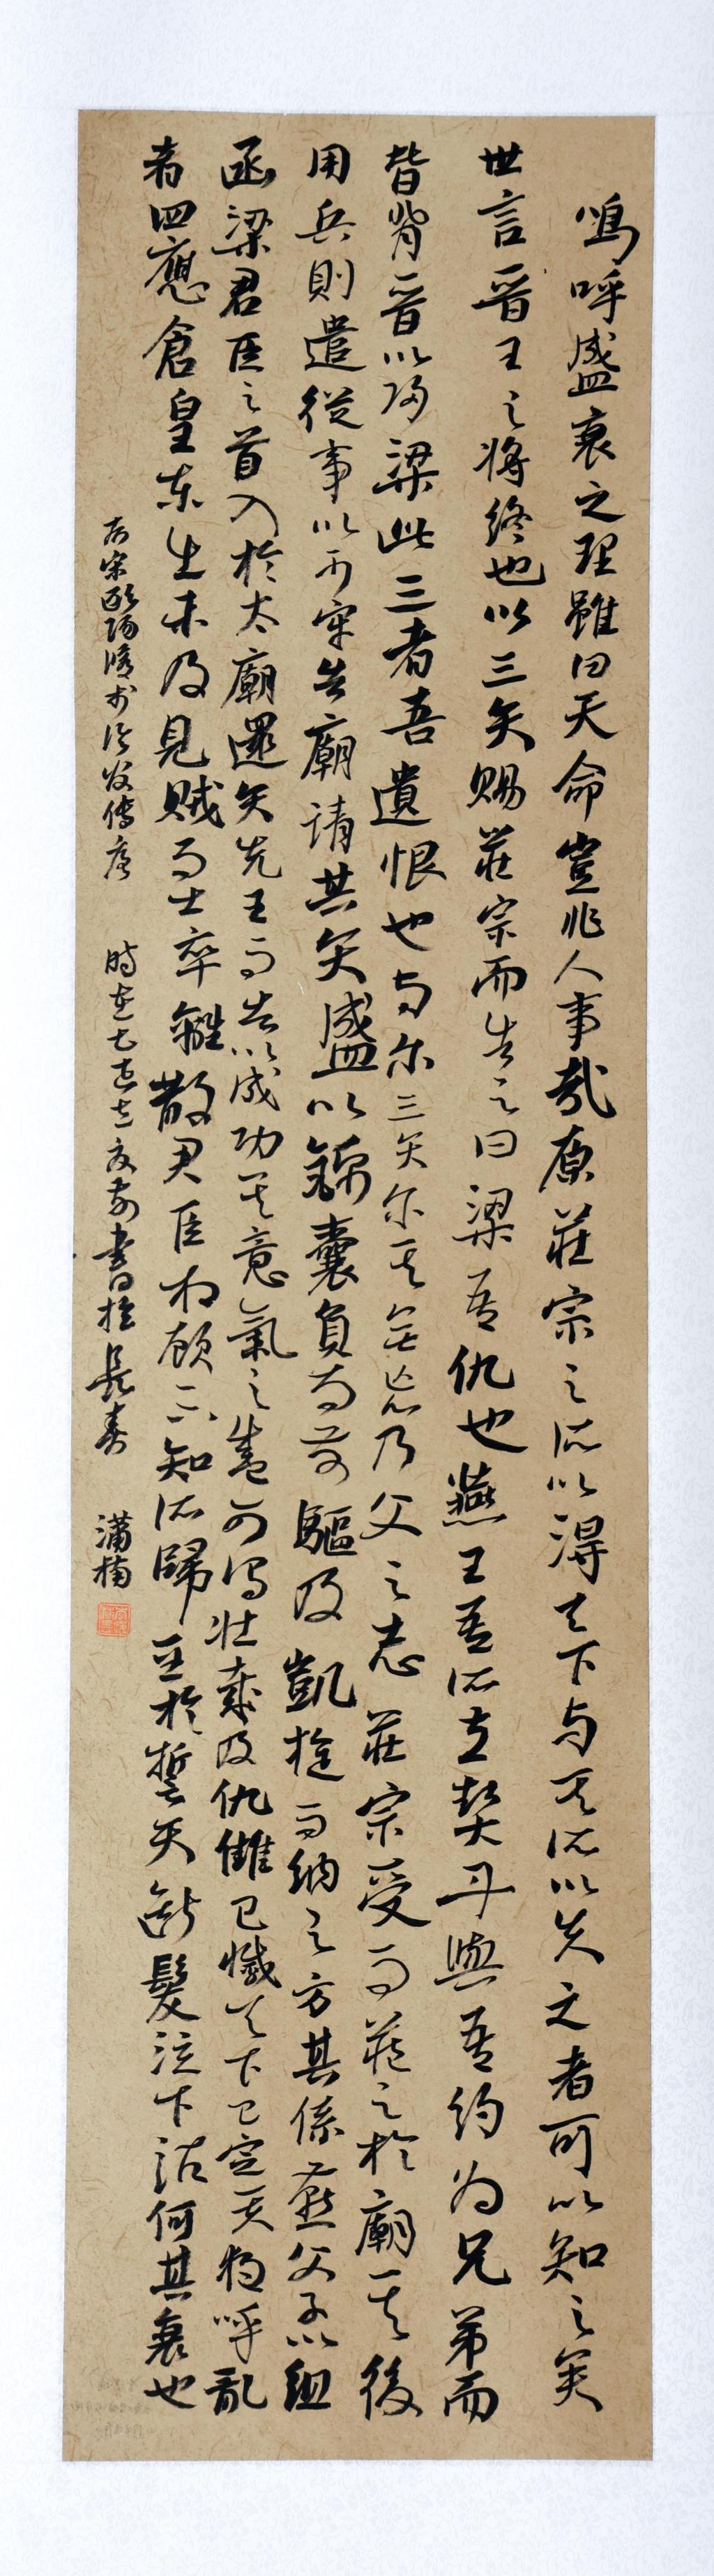 嗚呼盛衰之理雖曰天命豈非人事哉原莊宗之所以得天下与其所以失之者可以知之矣
世言晉王之將終也以三矢賜莊宗而告之曰梁吾仇也燕王吾所立契丹與吾約为兄弟而
皆背晉以归梁此三者吾遺恨也与尔三矢尔其无忘乃父之志莊宗受而藏之於廟其後
用兵則遣從事以少牢告廟請其矢盛以錦囊負而前驅及凱旋而納之方其係燕父子以組
函梁君臣之首入於太廟還矢先王而告以成功其意氣之盛可谓壮哉及仇雠已滅天下已定一夫夜呼亂
者四應倉皇东出未及見賊而士卒離散君臣相顾不知所歸至於誓天斷髮泣下沾何其衰也
右宋歐陽修五代伶官傳序 時在乙巳 書於長春 潇楠